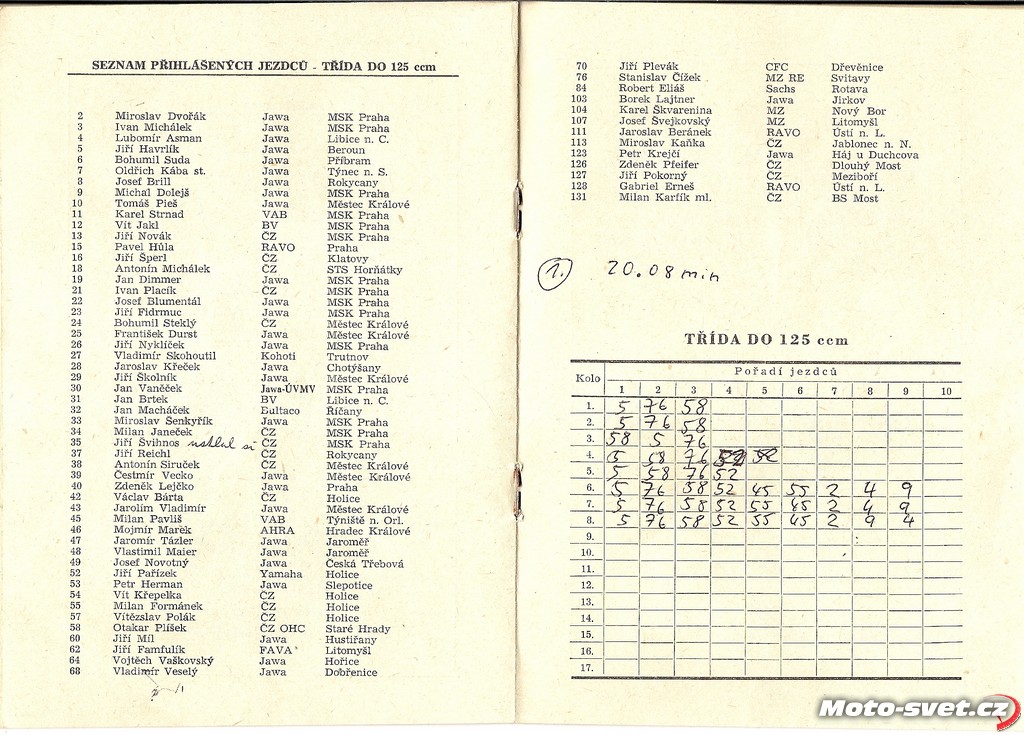 SEZNAM PŘIHLÁŠENÝCH JEZDCŮ - TŘÍDA DO 125 ccm
2 Miroslav Dvořák Jawa MSK Praha
3 Ivan Michálek Jawa MSK Praha
4 Lubomír Asman Jawa Libice n. C.
5 Jiří Havrlík Jawa Beroun
6 Bohumil Suda Jawa Příbram
7 Oldřich Kába st. Jawa Týnec n. S.
8 Josef Brill Jawa Rokycany
9 Michal Dolejš Jawa MSK Praha
10 Tomáš Pieš Jawa Městec Králové
11 Karel Strnad VAB MSK Praha
12 Vít Jakl BV MSK Praha
13 Jiří Novák ČZ MSK Praha
15 Pavel Hůla RAVO Praha
16 Jiří Šperl ČZ Klatovy
18 Antonín Michálek ČZ STS Horňátky
19 Jan Dimmer Jawa MSK Praha
21 Ivan Placík ČZ MSK Praha
22 Josef Blumentál Jawa MSK Praha
23 Jiří Fidrmuc Jawa MSK Praha
24 Bohumil Steklý ČZ Městec Králové
25 František Durst Jawa Městec Králové
26 Jiří Nyklíček Jawa MSK Praha
27 Vladimír Skohoutil Kohoti Trutnov
28 Jaroslav Křeček Jawa Chotýšany
29 Jiří Školník Jawa Městec Králové
30 Jan Vaněček Jawa-ÚVMV MSK Praha
31 Jan Brtek BV Libice n. C.
32 Jan Macháček Bultaco Říčany
33 Miroslav Šenkyřík Jawa MSK Praha
34 Milan Janeček ČZ MSK Praha
35 Jiří Švihnos ČZ MSK Praha
37 Jiří Reichl ČZ Rokycany
38 Antonín Siruček ČZ Městec Králové
39 Čestmír Vecko Jawa Městec Králové
40 Zdeněk Lejčko Jawa Praha
42 Václav Bárta ČZ Holice
43 Jarolím Vladimír Jawa Městec Králové
45 Milan Pavliš VAB Týniště n. Orl.
46 Mojmír Mařek AHRA Hradec Králové
47 Jaromír Tázler Jawa Jaroměř
48 Vlastimil Maier Jawa Jaroměř
49 Josef Novotný Jawa Česká Třebová
52 Jiří Pařízek Yamaha Holice
53 Petr Herman Jawa Slepotice
54 Vít Křepelka ČZ Holice
55 Milan Formánek ČZ Holice
57 Vítězslav Polák ČZ Holice
58 Otakar Plíšek ČZ OHC Staré Hrady
60 Jiří Míl Jawa Hustířany
62 Jiří Famfulík FAVA Litomyšl
64 Vojtěch Vaškovský Jawa Hořice
68 Vladimír Veselý Jawa Dobřenice
70 Jiří Plevák CFC Dřevěnice
76 Stanislav Čížek MZ RE Svitavy
84 Robert Eliáš Sachs Rotava
103 Borek Lajtner Jawa Jirkov
104 Karel Škvarenina MZ Nový Bor
107 Josef Švejkovský MZ Litomyšl
111 Jaroslav Beránek RAVO Ústí n. L.
113 Miroslav Kaňka ČZ Jablonec n. N.
123 Petr Krejčí Jawa Háj u Duchcova
126 Zdeněk Pfeifer ČZ Dlouhý Most
127 Jiří Pokorný ČZ Meziboří
128 Gabriel Erneš RAVO Ústí n. L.
131 Milan Karfík ml. ČZ BS Most
1. 20.08 min
TŘÍDA DO 125 ccm
Kolo Pořadí jezdců
1 2 3 4 5 6 7 8 9 10
1. 5 76 58
2. 5 76 58
3. 58 5 76
4. 5 58 76 52
5. 5 58 76 52
6. 5 76 58 52 45 55 2 4 9
7. 5 76 58 52 55 45 2 4 9
8. 5 76 58 52 55 45 2 9 4
9.
10.
11.
12.
13.
14.
15.
16.
17.
Moto-svet.cz